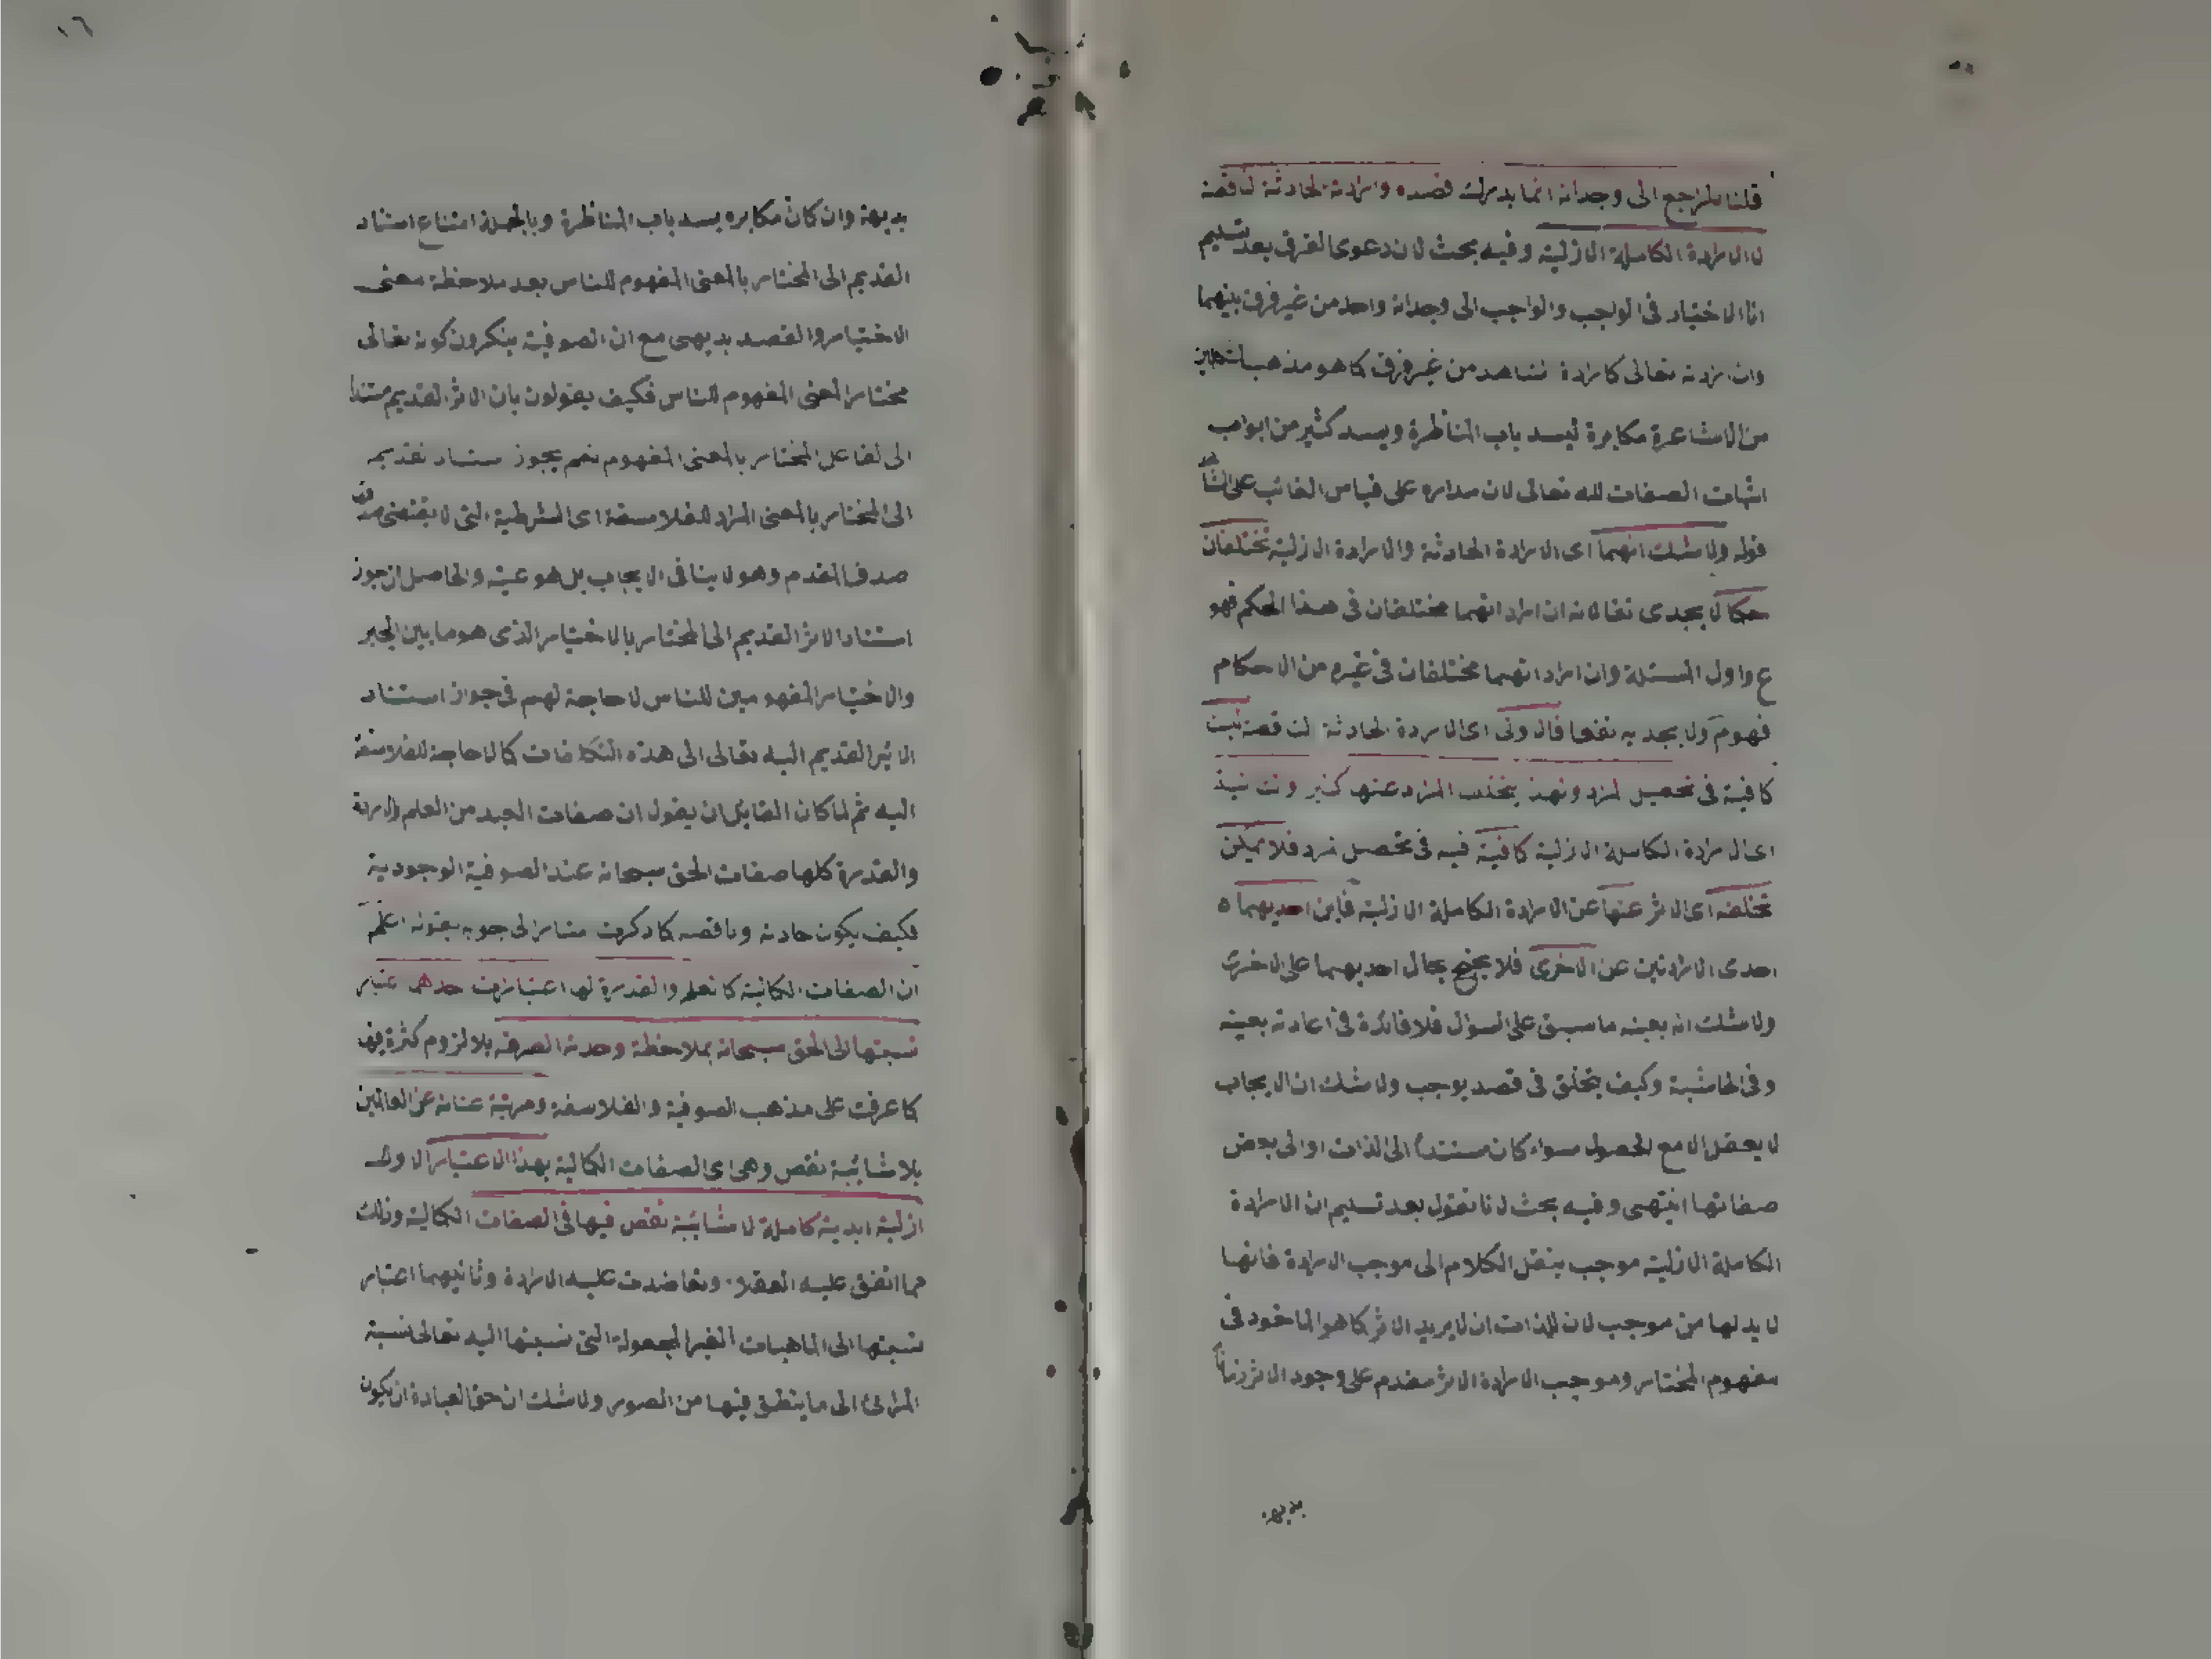 قلنا المراجع الى وجدانه انما يدرك قصده وارادته الحادثة الناقصة
لا الارادة الكاملة الازلية وفيه بحث لان دعوى الفرق بعد تسليم
انا الاختياد فى الواجب والواجب الى وجدانه واحد من غير فرق بينهما
وان ارادته تعالى كارادة الشاهد من غير فرق كما هو مذهب
من الاشاعرة مكابرة ليسد باب المناظرة ويسد كثير من ابواب
اثبات الصفات لله تعالى لان مداره على قياس الغائب على الشاهد
قوله ولا شك انهما اى الارادة الحادثة والارادة الازلية تختلفان
حكما لا يجدى نفعا لانه ان اراد انهما مختلفان فى هذا الحكم فهو
ع واول المسئلة وان اراد انهما مختلفان فى غيره من الاحكام
فهو م ولا يجد به نفعا فالاولى اى الارادة الحادثة الناقصة ليست
كافية فى تحصيل المراد ولهذا يتخلف المراد عنها كثيرا والثانية
اى الارادة الكاملة الازلية كافية فيه فى تحصيل المراد فلا يمكن
تخلفه اى الاثر عنها عن الارادة الكاملة الازلية فاين احديهما ه
احدى الارادتين عن الاخرى فلا يتضح بحال احديهما على الاخرى
ولا شك انه بعينه ما سبق على السؤال فلا فائدة فى اعادته بعينه
وفى الحاشية وكيف يتخلق فى قصد يوجب ولا شك ان الايجاب
لا يعقل الا مع الحصول سواء كان مستندا الى الذات او الى بعض
صفاتها انتهى وفيه بحث لانا نقول بعد تسليم ان الارادة
الكاملة الازلية موجب ينقل الكلام الى موجب الارادة فانها
لا بد لها من موجب لان للذات ان لا يريد الاثر كما هو الماخوذ فى
مفهوم المختار وموجب الارادة الاثر مقدم على وجود الاثر زمانا
بديهة
١٦
بديهة وان كان مكابره يسد باب المناظرة وبالجملة امتناع استناد
القديم الى المختار بالمعنى المفهوم للناس بعد ملاحظة معنى
الاختيار والقصد بديهى مع ان الصوفية ينكرون كونه تعالى
مختارا لمعنى المفهوم للناس فكيف يقولون بان الاثر القديم مستندا
الى الفاعل المختار بالمعنى المفهوم نعم يجوز استناد القديم
الى المختار بالمعنى المراد للفلاسفة اى الشرطية التى لا يقتضى صدقها
صدق المقدم وهو لا ينافى الايجاب بل هو عينه والحاصل ان جوز
استناد الاثر القديم الى المختار بالاختيار الذى هو ما بين الجبر
والاختيار المفهومين للناس لا حاجة لهم فى جواز استناد
الاثر القديم اليه تعالى الى هذه التكلفات كما لا حاجة للفلاسفة
اليه ثم لما كان القائل ان يقول ان صفات العبد من العلم والارادة
والقدرة كلها صفات الحق سبحانه عند الصوفية الوجودية
فكيف يكون حادثه وناقصه كما ذكرت اشار الى جوابه بقوله اعلم
ان الصفات الكمالية كالعلم والقدرة لها اعتباران احدهما اعتبار
نسبتها الى الحق سبحانه بملاحظة وحدته الصرفه بلا لزوم كثرة فيها
كما عرفت على مذهب الصوفية والفلاسفة ومرتبة غنائه عن العالمين
بلا شائبة نقص وهى اى الصفات الكمالية بهذا الاعتبار الاول
ازلية ابدية كاملة لا شائبة نقص فيها فى الصفات الكمالية وذلك
مما اتفق عليه العقلاء وتعاضدت عليه الارادة وثانيهما اعتبار
نسبتها الى الماهيات الغير المجعولة التى نسبتها اليه تعالى نسبة
المرائى الى ما ينطبق فيها من الصور ولا شك ان حق العبادة ان يكون